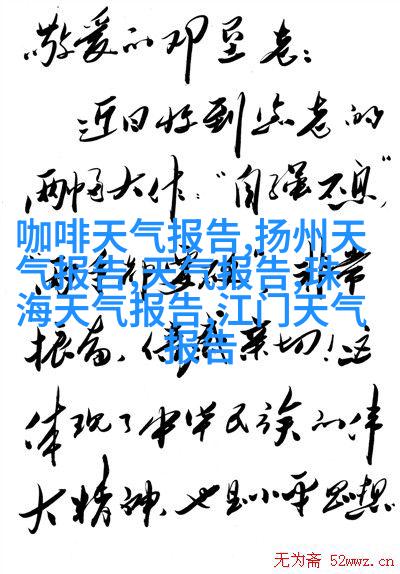 敬爱的邓垦老：
近日收到您老的
两幅大作："自强不息"，
咖啡天气报告,扬州天
气报告,天气报告,珠
海天气报告,江门天气
报告
非常
振奋、倍感亲切！这
体现了中华民族的伟
大精神，也是小平思想
无为斋 52wwz.cn